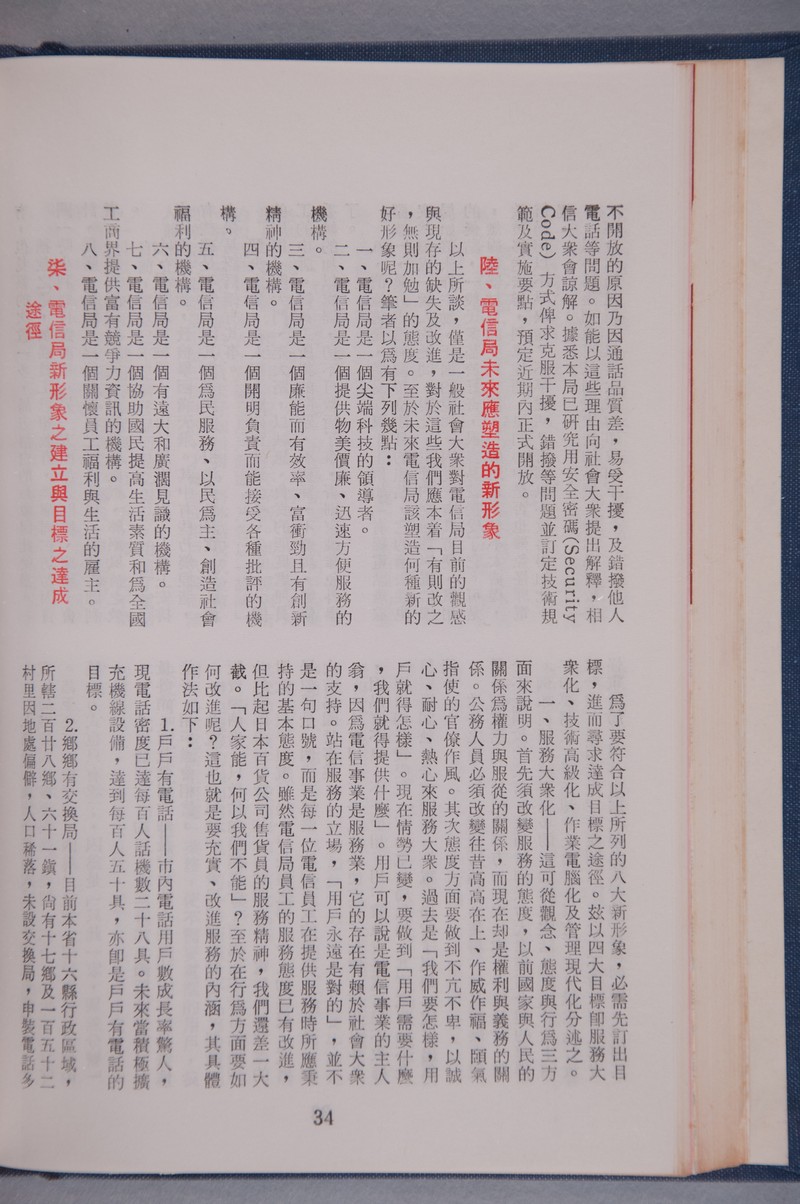 不開放的原因乃因通話品質差，易受干擾，及錯撥他人
電話等問題。如能以這些理由向社會大衆提出解釋，相
信大衆會諒解。據悉本局已研究用安全密碼(Security
Code) 方式俾求克服干擾，錯撥等問題並訂定技術規
範及實施要點，預定近期內正式開放。
陸、電信局未來應塑造的新形象
以上所談，僅是一般社會大衆對電信局目前的觀感
與現存的缺失及改進，對於這些我們應本着「有則改之
，無則加勉」的態度。至於未來電信局該塑造何種新的
好形象呢？筆者以爲有下列幾點：
一、電信局是一個尖端科技的領導者。
二、電信局是一個提供物美價廉、迅速方便服務的
機構。
三、電信局是一個廉能而有效率、富衝勁且有創新
精神的機構。
四、電信局是一個開明負責而能接受各種批評的機
構。
五、電信局是一個爲民服務、以民爲主、創造社會
福利的機構。
六、電信局是一個有遠大和廣濶見識的機構。
七、電信局是一個協助國民提高生活素質和爲全國
工商界提供富有競爭力資訊的機構。
八、電信局是一個關懷員工福利與生活的雇主。
柒、電信局新形象之建立與目標之達成
途徑
爲了要符合以上所列的八大新形象，必需先訂出目
標，進而尋求達成目標之途徑。玆以四大目標卽服務大
衆化、技術高級化、作業電腦化及管理現代化分述之。
一、服務大衆化——這可從觀念、態度與行爲三方
面來說明。首先須改變服務的態度，以前國家與人民的
關係爲權力與服從的關係，而現在却是權利與義務的關
係。公務人員必須改變往昔高高在上、作威作福、頤氣
指使的官僚作風。其次態度方面要做到不亢不卑，以誠
心、耐心、熱心來服務大衆。過去是「我們要怎樣，用
戶就得怎樣」。現在情勢已變，要做到「用戶需要什麼
，我們就得提供什麼」。用戶可以說是電信事業的主人
翁，因爲電信事業是服務業，它的存在有賴於社會大衆
的支持。站在服務的立場，「用戶永遠是對的」，並不
是一句口號，而是每一位電信員工在提供服務時所應秉
持的基本態度。雖然電信局員工的服務態度已有改進，
但比起日本百貨公司售貨員的服務精神，我們還差一大
截。「人家能，何以我們不能」？至於在行爲方面要如
何改進呢？這也就是要充實、改進服務的內涵，其具體
作法如下：
1.戶戶有電話——市內電話用戶數成長率驚人，
現電話密度已達每百人話機數二十八具。未來當積極擴
充機線設備，達到每百人五十具，亦卽是戶戶有電話的
目標。
2.鄉鄉有交換局——目前本省十六縣行政區域，
所轄二百廿八鄉、六十一鎭，尙有十七鄉及一百五十二
村里因地處偏僻，人口稀落，未設交換局，申裝電話多
34